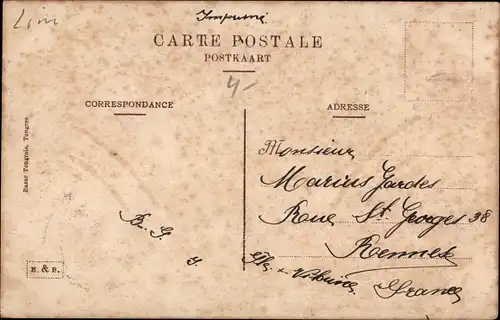 Lim
Imprimé
CARTE POSTALE
POSTKAART
4-
CORRESPONDANCE
ADRESSE
Bazar Tongrois, Tongres.
Monsieur
Marius Gardes
Rue St Georges 38
Rennes
Ille-Vilaine
France
B. G.
E. & B.